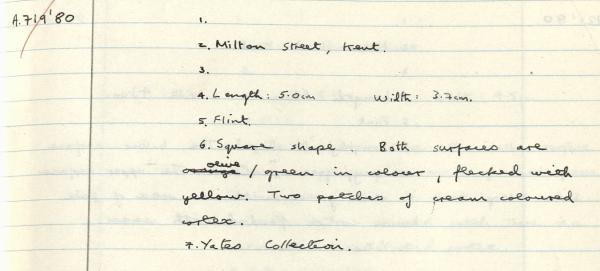 A.719'80
1.
2. Milton Street, Kent.
3.
4. Length: 5.0cm Width: 3.7cm.
5. Flint.
6. Square shape. Both surfaces are
olive
orange / green in colour, flecked with
yellow. Two patches of cream coloured
cortex.
7. Yates Collection.